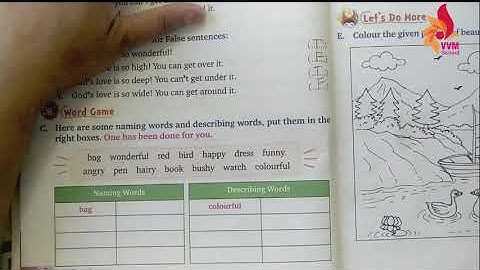 or False sentences:
so wonderful!
is so high! You can get over it.
God's love is so deep! You can't get under it.
God's love is so wide! You can get around it.
Word Game
C. Here are some naming words and describing words, put them in the
right boxes. One has been done for you.
bag wonderful red bird happy dress funny
angry pen hairy book bushy watch colourful
Naming Words
bag
Describing Words
colourful
Let's Do More
E. Colour the given of beau
VVM
School